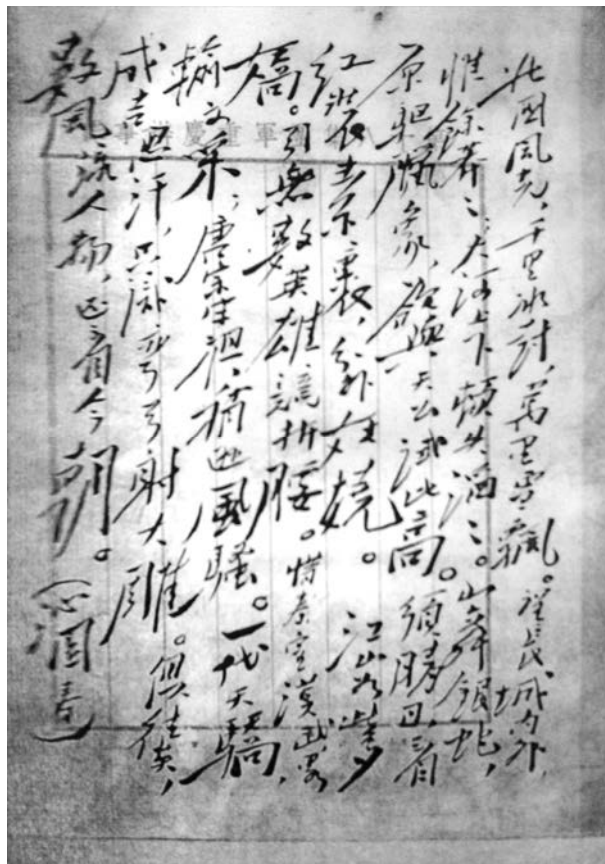 北國風光,千里冰封,萬里雪飄。望長城内外,
惟餘莽々;大河上下,頓失滔々。山舞銀蛇,
原驅臘象,欲與天公試比高。須晴日,看
紅裝素裹,分外妖嬈。 江山如此多
嬌。引無數英雄競折腰。惜秦皇漢武,畧
輸文采;唐宗宋祖,稍遜風騷。一代天驕,
成吉思汗,只識彎弓射大雕。俱往矣,
數風流人物,還看今朝。(沁園春)